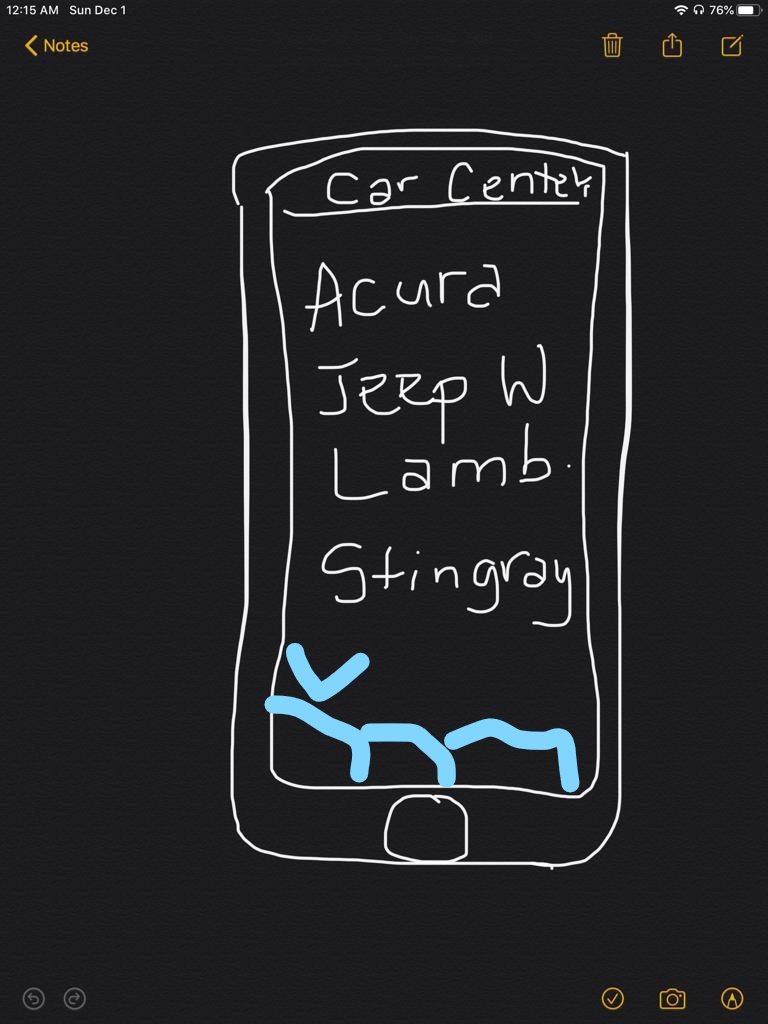 12:15 AM Sun Dec 1 76%
Notes
Car Center
Acura
Jeep W
Lamb.
Stingray